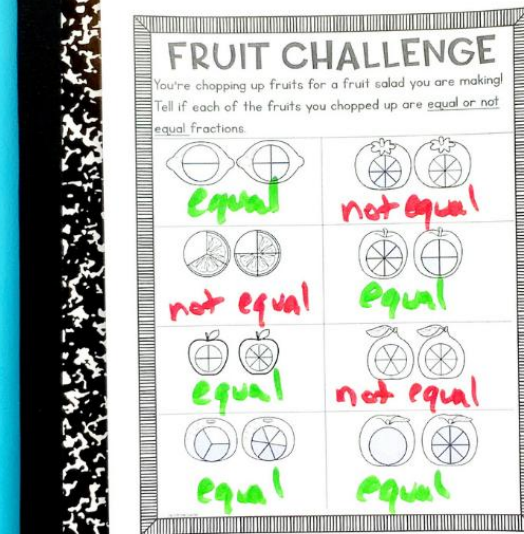 FRUIT CHALLENGE
You're chopping up fruits for a fruit salad you are making!
Tell if each of the fruits you chopped up are equal or not
equal fractions.
equal
not equal
not equal
equal
equal
not equal
equal
equal